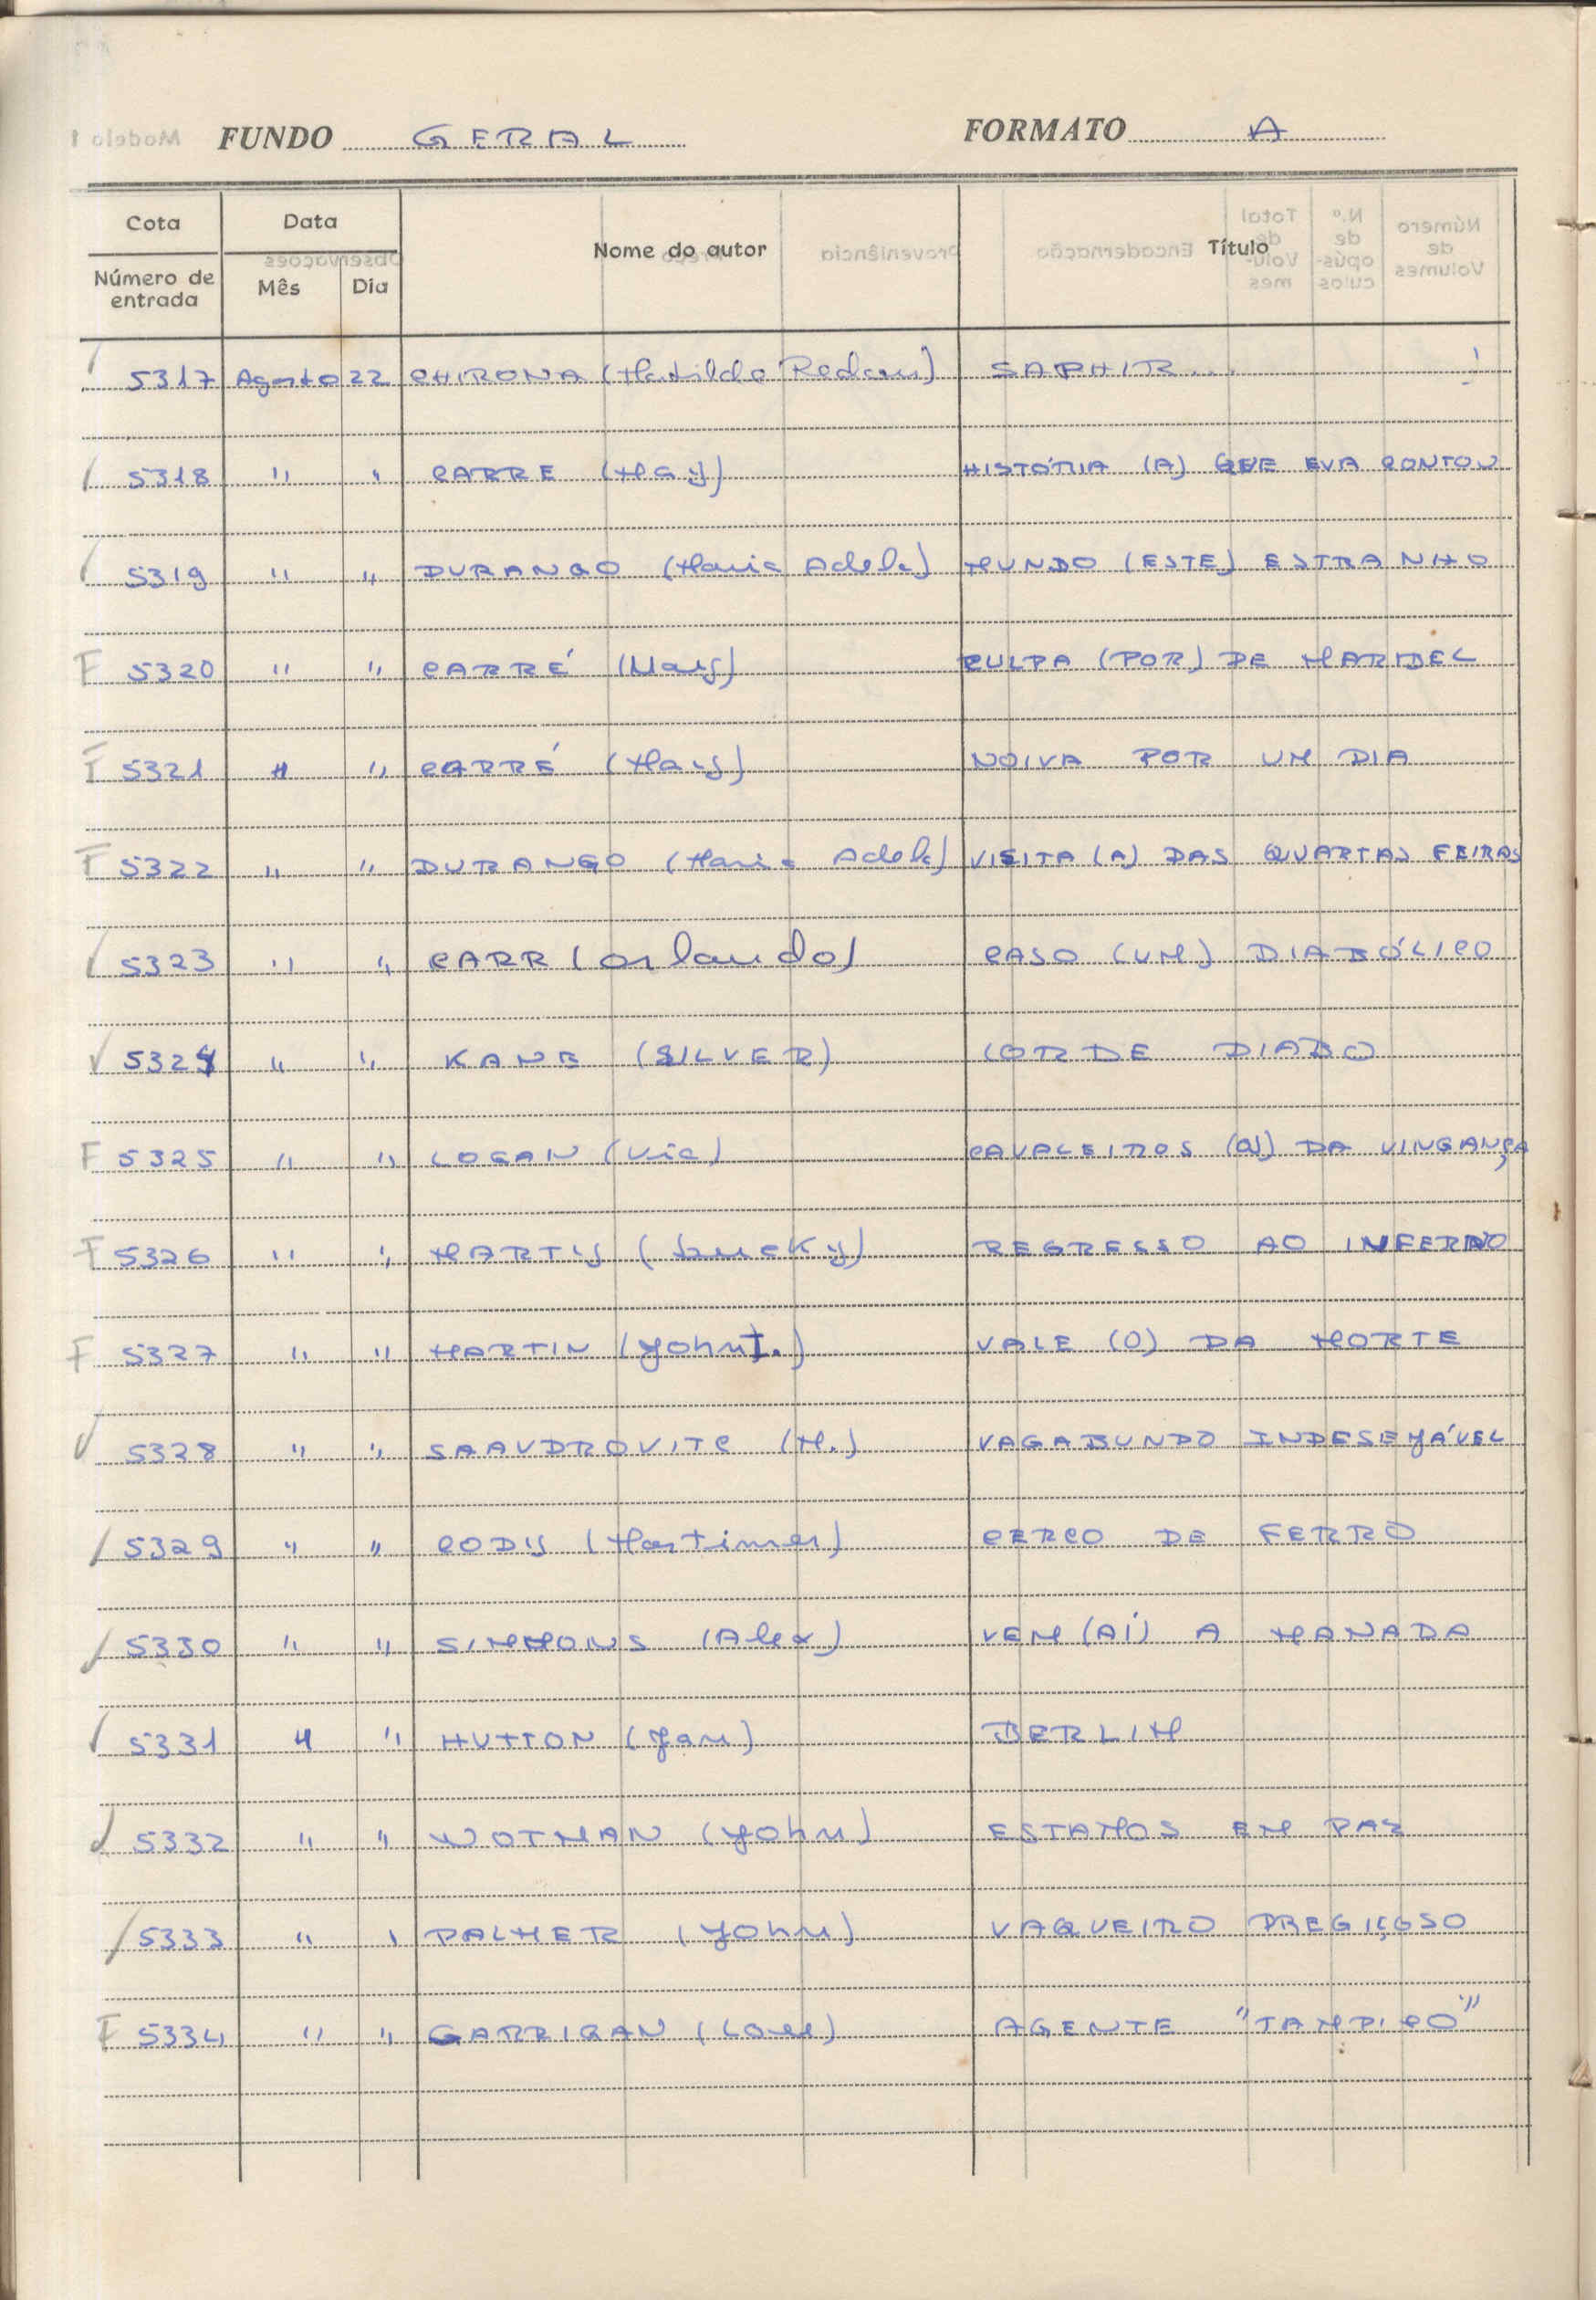 FUNDO GERAL FORMATO A
Cota Data Nome do autor Título
Número de entrada Mês Dia
5317 Agosto 22 CHIRONA (Matilde Redon) SAPHIR...
5318 " " CARRE (May) HISTÓRIA (A) QUE EVA CONTOU
5319 " " DURANGO (Maria Adela) MUNDO (ESTE) ESTRANHO
F 5320 " " CARRÉ (May) CULPA (POR) DE MARIBEL
F 5321 " " CARRÉ (May) NOIVA POR UM DIA
F 5322 " " DURANGO (Maria Adela) VISITA (A) DAS QUARTAS FEIRAS
5323 " " CARR (Orlando) CASO (UM) DIABÓLICO
5324 " " KANE (SILVER) COR DE DIABO
F 5325 " " LOGAN (Vic) CAVALEIROS (OS) DA VINGANÇA
F 5326 " " MARTY (Lucky) REGRESSO AO INFERNO
F 5327 " " MARTIN (John I.) VALE (O) DA MORTE
5328 " " SAAVDROVITC (M.) VAGABUNDO INDESEJÁVEL
5329 " " CODY (Mortimer) CERCO DE FERRO
5330 " " SIMMONS (Alex) VEM (AÍ) A MANADA
5331 " " HUTTON (Jan) BERLIM
5332 " " WOTMAN (John) ESTAMOS EM PAZ
5333 " " PALMER (John) VAQUEIRO PREGIÇOSO
F 5334 " " GARRIGAN (Lou) AGENTE "TAMPICO"